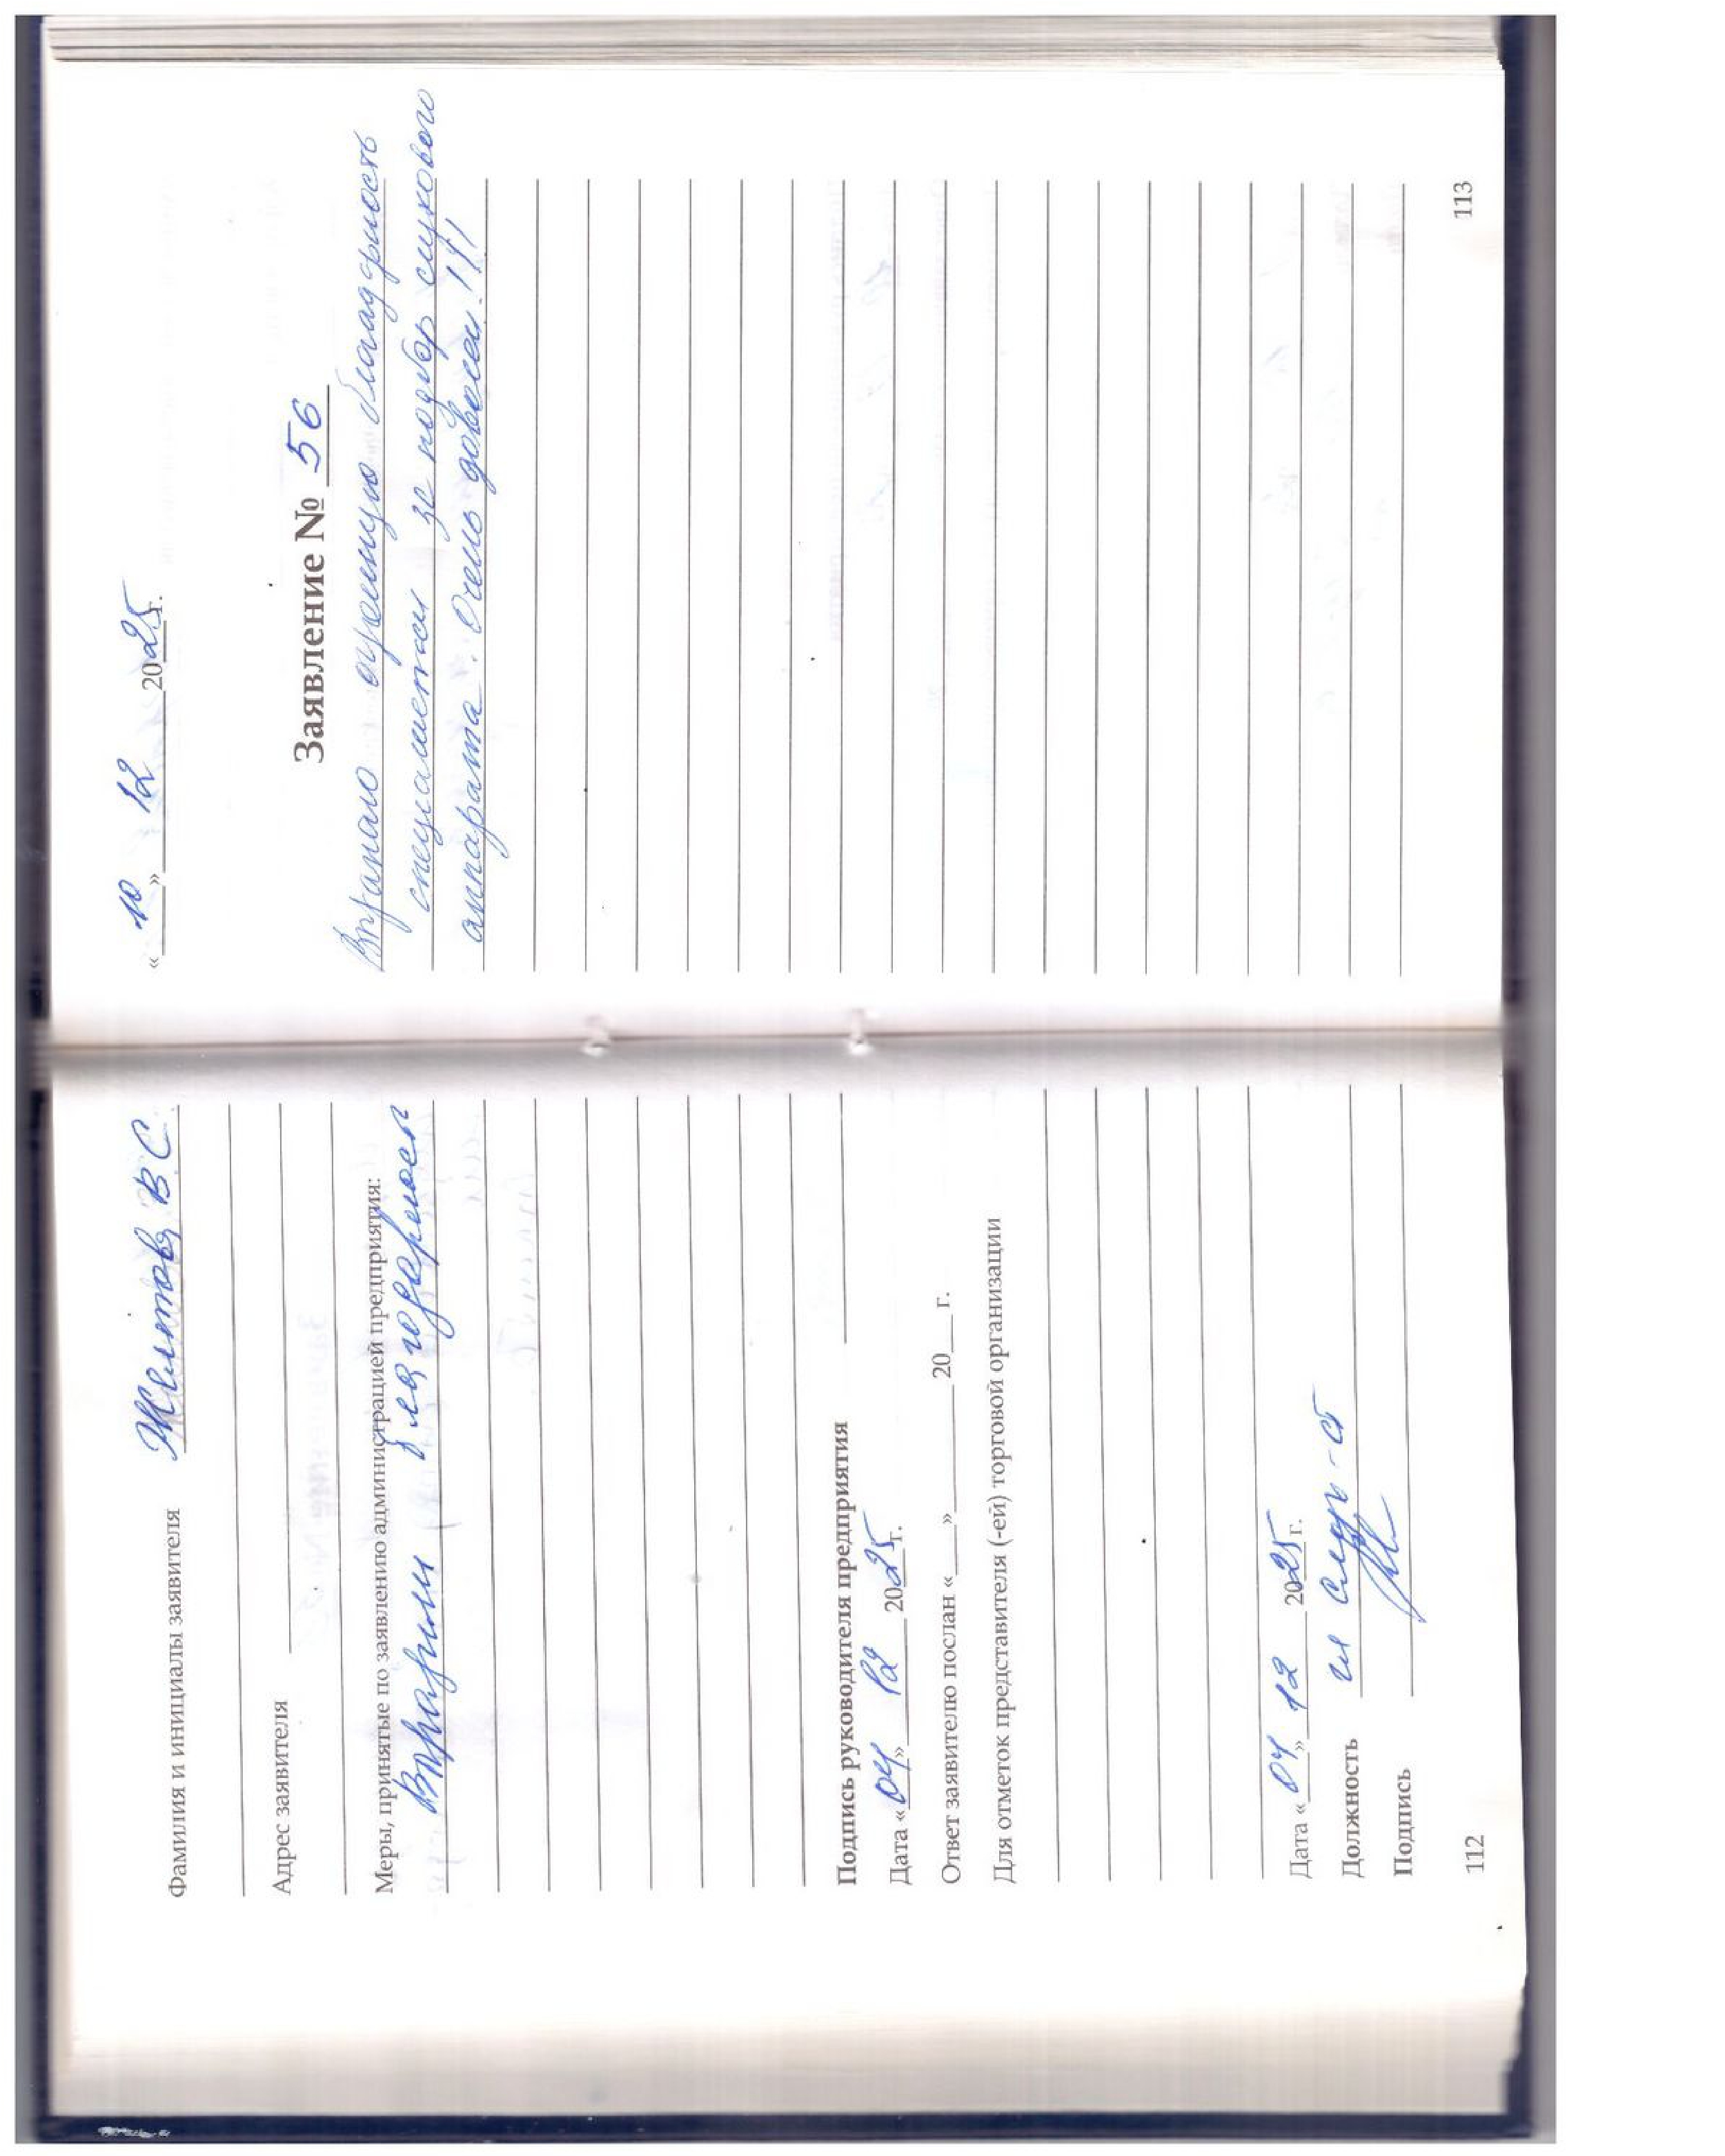 Фамилия и инициалы заявителя Желтов В С.
Адрес заявителя
Меры, принятые по заявлению администрацией предприятия:
Выразили благодарность
Подпись руководителя предприятия
Дата « 04 » 12 2025 г.
Ответ заявителю послан « » 20 г.
Для отметок представителя (-ей) торговой организации
Дата « 04 » 12 2025 г.
Должность
Подпись
112
« 10 » 12 2025 г.
Заявление № 56
Выражаю огромную благодарность
специалистам за подбор слухового
аппарата. Очень довосен!!!
113